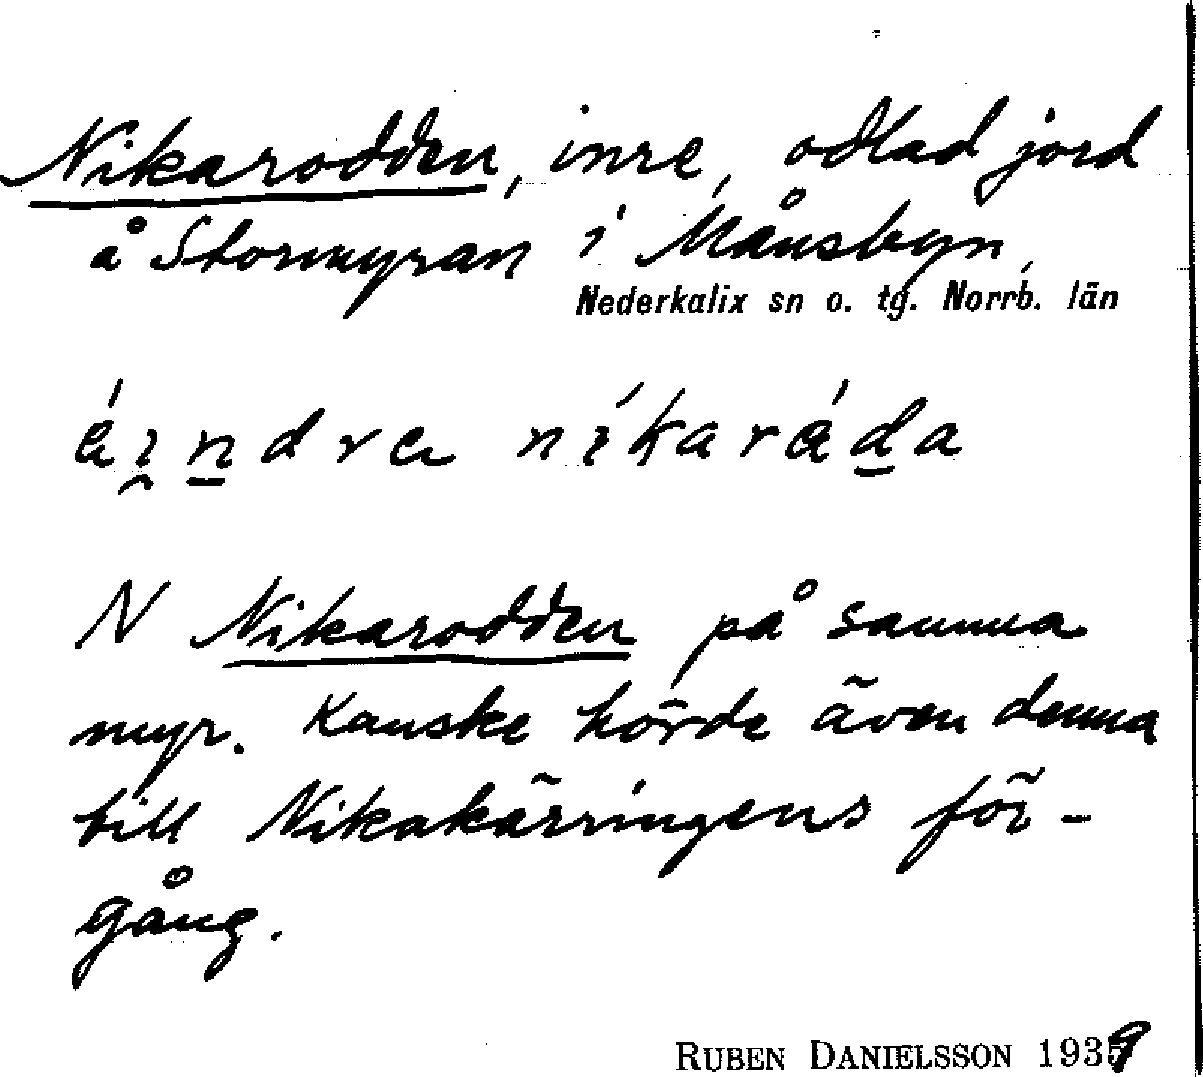 Nikarodden, inre, odlad jord
å Stormyran i Månsbyn,
Nederkalix sn o. tg. Norrb. län
N Nikarodden på samma
myr. Kanske hörde även denna
till Nikakärringens för-
gång.
RUBEN DANIELSSON 1939